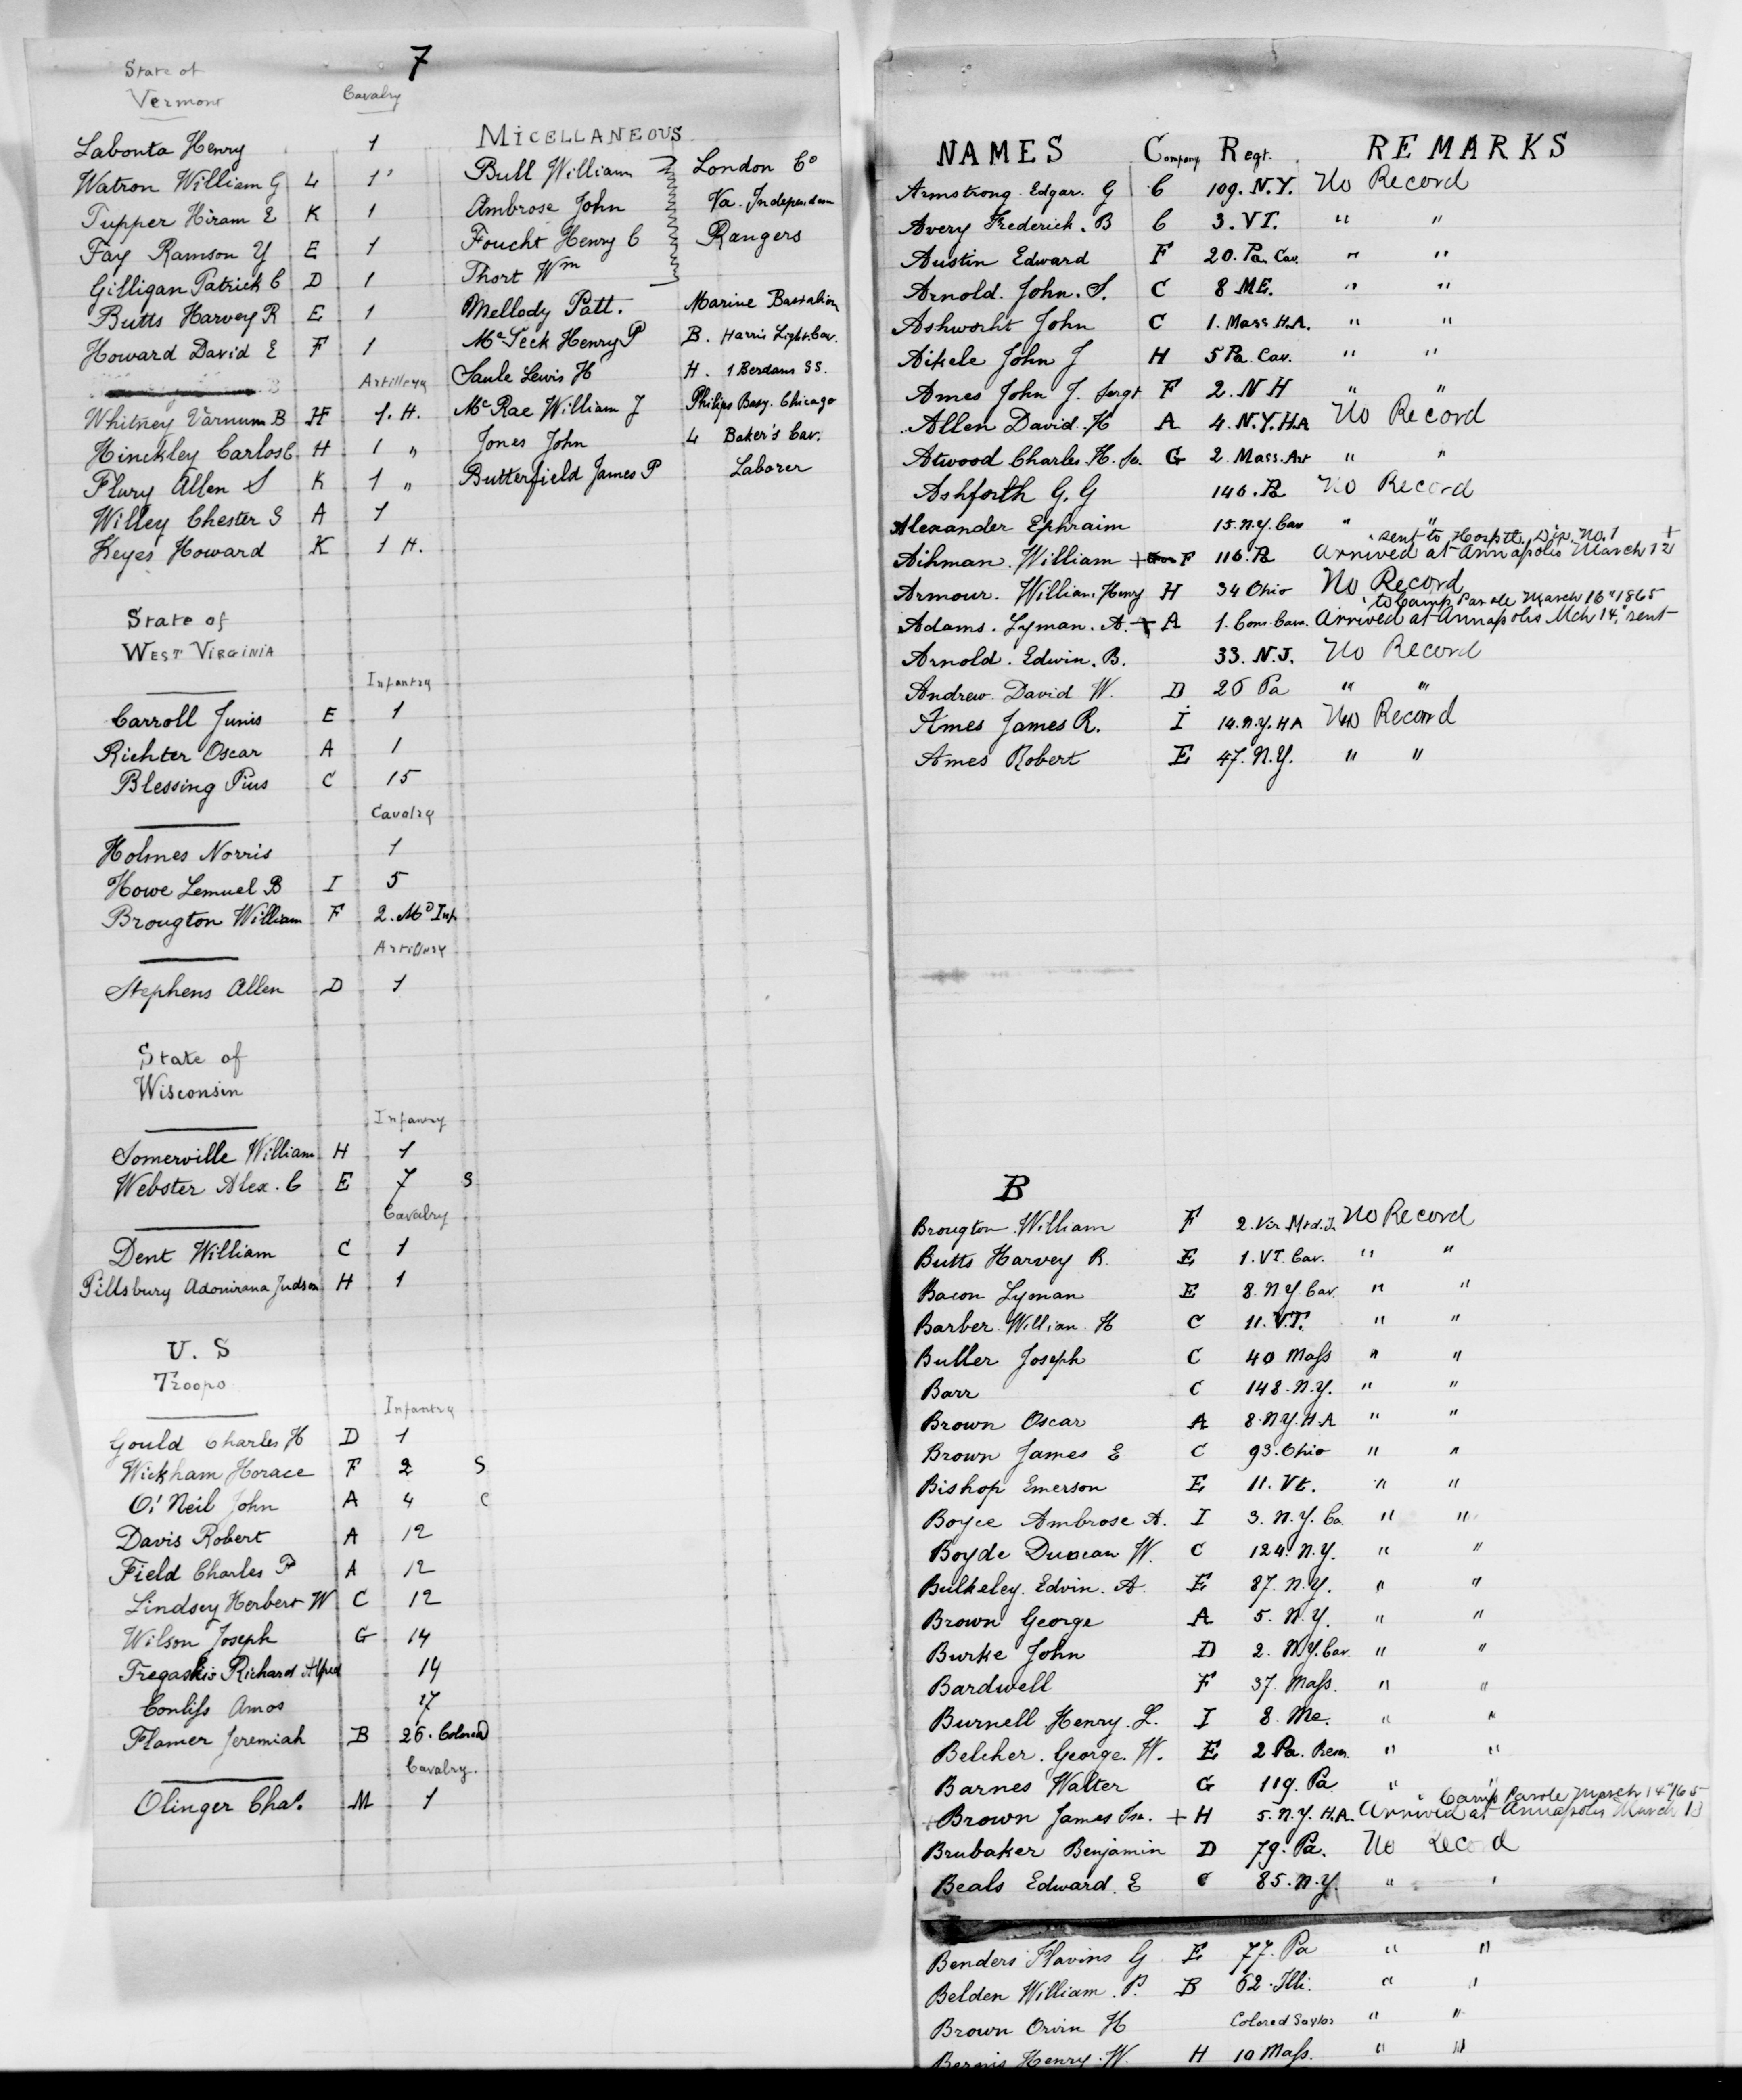 7
State of
Vermont
Cavalry
Labonta Henry 1
Watron William G L 1
Tupper Hiram E K 1
Fay Ramson Y E 1
Gilligan Patrick C D 1
Butts Harvey R E 1
Howard David E F 1
Artillery
Whitney Varnum B H 1. H.
Hinckley Carlos C. H 1 "
Flury Allen S K 1 "
Willey Chester S A 1
Keyes Howard K 1 H.
State of
WEST VIRGINIA
Infantry
Carroll Junis E 1
Richter Oscar A 1
Blessing Pius C 15
Cavalry
Holmes Norris 1
Howe Lemuel B I 5
Brougton William F 2. Md Inf
Artillery
Stephens Allen D 1
State of
Wisconsin
Infantry
Somerville William H 1
Webster Alex. C E 7 S
Cavalry
Dent William C 1
Pillsbury Adonirana Judson H 1
U. S
Troops
Infantry
Gould Charles H D 1
Wickham Horace F 2 S
O'Neil John A 4 C
Davis Robert A 12
Field Charles P A 12
Lindsey Herbert W C 12
Wilson Joseph G 14
Tregaskis Richard Alfred 14
Conliss Amos 17
Flamer Jeremiah B 26. Colored
Cavalry.
Olinger Chas. M 1
MICELLANEOUS
Bull William London Co
Ambrose John Va. Independen
Foucht Henry C Rangers
Thort Wm
Mellody Patt. Marine Battalion
McTeck Henry P B. Harris Light Cav.
Saule Lewis H H. 1 Berdans SS.
McRae William J Philips Baty. Chicago
Jones John L Baker's Cav.
Butterfield James P Laborer
NAMES Company Regt. REMARKS
Armstrong Edgar. G C 109. N.Y. No Record
Avery Frederick. B C 3. VT. " "
Austin Edward F 20. Pa. Cav. " "
Arnold. John. S. C 8 ME. " "
Ashworht John C 1. Mass. H.A. " "
Aikele John J H 5 Pa. Cav. " "
Ames John J. Sergt F 2. N H " "
Allen David. H A 4. N.Y. H.A No Record
Atwood Charles. H. G 2. Mass. Art " "
Ashforth G. G 146. Pa No Record
Alexander Ephraim 15. N.Y. Cav " "
sent to Hospt. Div. No. 1 +
Aihman. William + F 116. Pa Arrived at Annapolis March 12
Armour. William Henry H 34 Ohio No Record
to Camp Parole March 16" 1865
Adams. Lyman. A. + A 1. Con. Cava. Arrived at Annapolis Mch 14", sent
Arnold. Edwin. B. 33. N.J. No Record
Andrew. David W. D 26 Pa " "
Ames James R. I 14. N.Y. H A No Record
Ames Robert E 47. N.Y. " "
B
Brougton William F 2. Vir. Md. I. No Record
Butts Harvey R. E 1. VT. Cav. " "
Bacon Lyman E 8. N.Y. Cav. " "
Barber. William H C 11. V.T. " "
Buller Joseph C 40 Mass " "
Barr C 148. N.Y. " "
Brown Oscar A 8. N.Y. H.A " "
Brown James E C 93. Ohio " "
Bishop Emerson E 11. Vt. " "
Boyce Ambrose A. I 3. N.Y. Ca " "
Boyde Duncan W. C 124. N.Y. " "
Bulkeley. Edvin. A E 87. N.Y. " "
Brown George A 5. N.Y. " "
Burke John D 2. N.Y. Cav. " "
Bardwell F 37. Mass. " "
Burnell Henry. L. I 8. Me. " "
Belcher. George. W. E 2 Pa. Resn. " "
Barnes Walter G 119. Pa " "
Camp Parole March 14" /65
+ Brown James + H 5. N.Y. H.A. Arrived at Annapolis March 13
Brubaker Benjamin D 79. Pa. No Record
Beals Edward. E C 85. N.Y. " "
Benders Flavins G E 77. Pa " "
Belden William. P. B 62. Illi. " "
Brown Orvin H Colored Saylor " "
Bemis Henry. W. H 10 Mass. " "